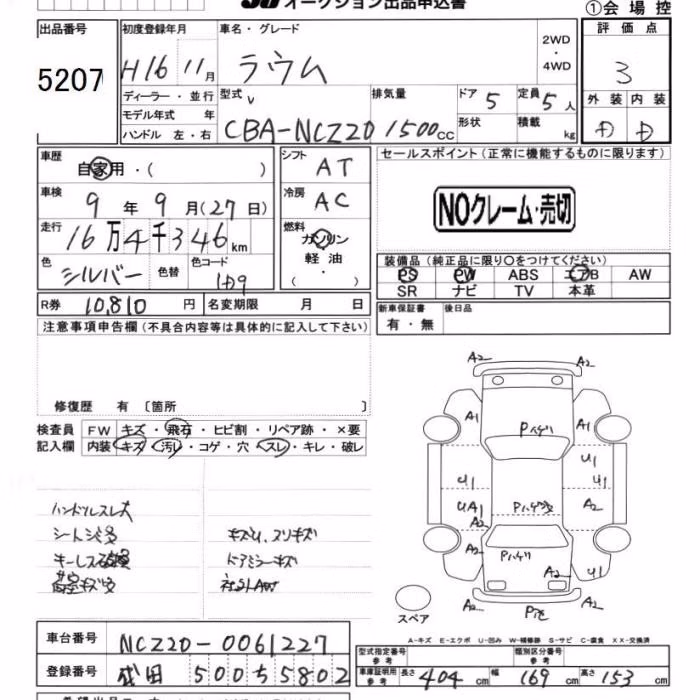 オークション出品申込書
①会場控
出品番号
5207
初度登録年月
H16 11月
車名・グレード
ラウム
2WD
・
4WD
評価点
3
ディーラー・並行
モデル年式 年
ハンドル 左・右
型式
CBA-NCZ20
排気量
1500cc
ドア 5
形状
定員 5人
積載 kg
外装 内装
D D
車歴
自家用・( )
シフト
AT
車検
9年9月(27日)
冷房
AC
走行
16万4千346km
燃料
ガソリン
軽油
( ・ )
色
シルバー
色替
色コード
1D9
R券 10,810円 名変期限 月 日
セールスポイント(正常に機能するものに限ります)
NOクレーム・売切
装備品(純正品に限り○をつけてください)
PS PW ABS エアB AW
SR ナビ TV 本革
新車保証書 後日品
有・無
注意事項申告欄(不具合内容等は具体的に記入して下さい)
修復歴 有〔箇所 〕
検査員
記入欄
FW キズ・飛石・ヒビ割・リペア跡・×要
内装 キズ・汚レ・コゲ・穴・スレ・キレ・破レ
ハンドルスレ大
キーレス
ドアミラーキズ
A2 A2
A1 A1
Pハゲ
U1
U1 U1
UA1 A2
A2
Pハゲ
A2 U1
A2 A2
スペア
A-キズ E-エクボ U-凹み W-補修跡 S-サビ C-腐食 XX-交換済
車台番号
NCZ20-0061227
登録番号
成田 500ち5802
型式指定番号
参考
類別区分番号
参考
車庫証明用
参考
長さ 404cm 幅 169cm 高さ 153cm